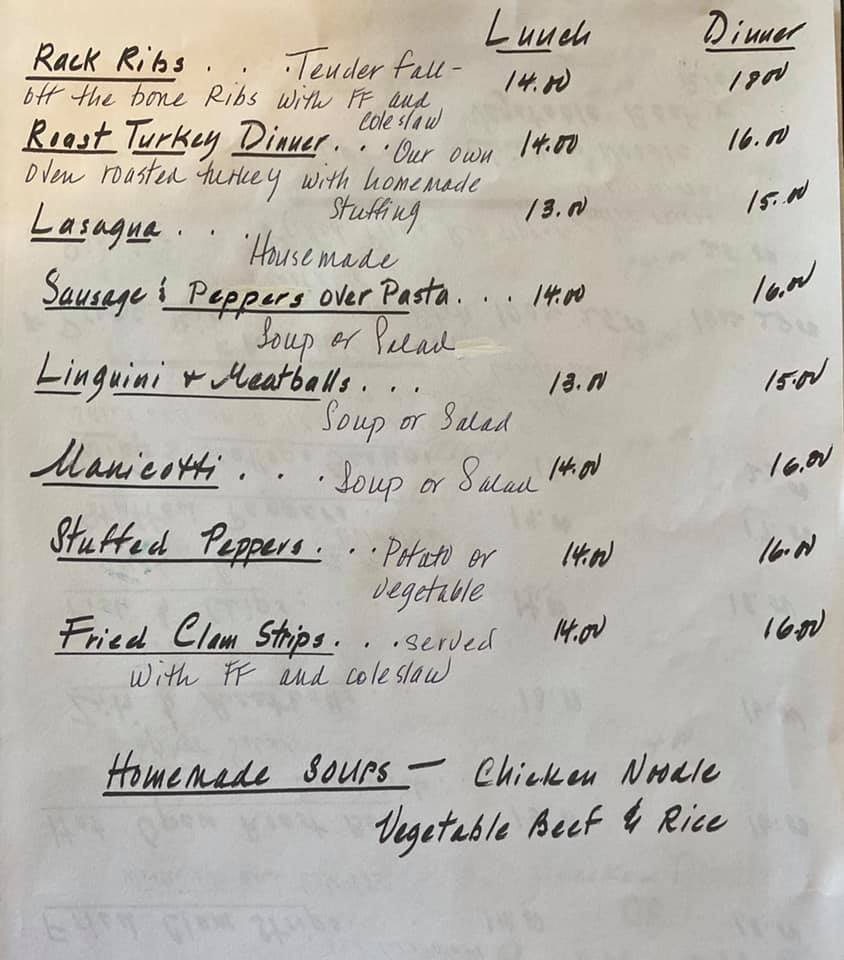 Lunch Dinner
Rack Ribs . . . Tender fall- 14.00 18.00
off the bone Ribs with FF and
coleslaw
Roast Turkey Dinner. . . Our own 14.00 16.00
oven roasted turkey with homemade
Stuffing
Lasagna . . . 13.00 15.00
Housemade
Sausage & Peppers over Pasta. . . 14.00 16.00
Soup or Salad
Linguini & Meatballs. . . 13.00 15.00
Soup or Salad
Manicotti . . . Soup or Salad 14.00 16.00
Stuffed Peppers. . . Potato or 14.00 16.00
vegetable
Fried Clam Strips. . . served 14.00 16.00
with FF and coleslaw
Homemade Soups — Chicken Noodle
Vegetable Beef & Rice